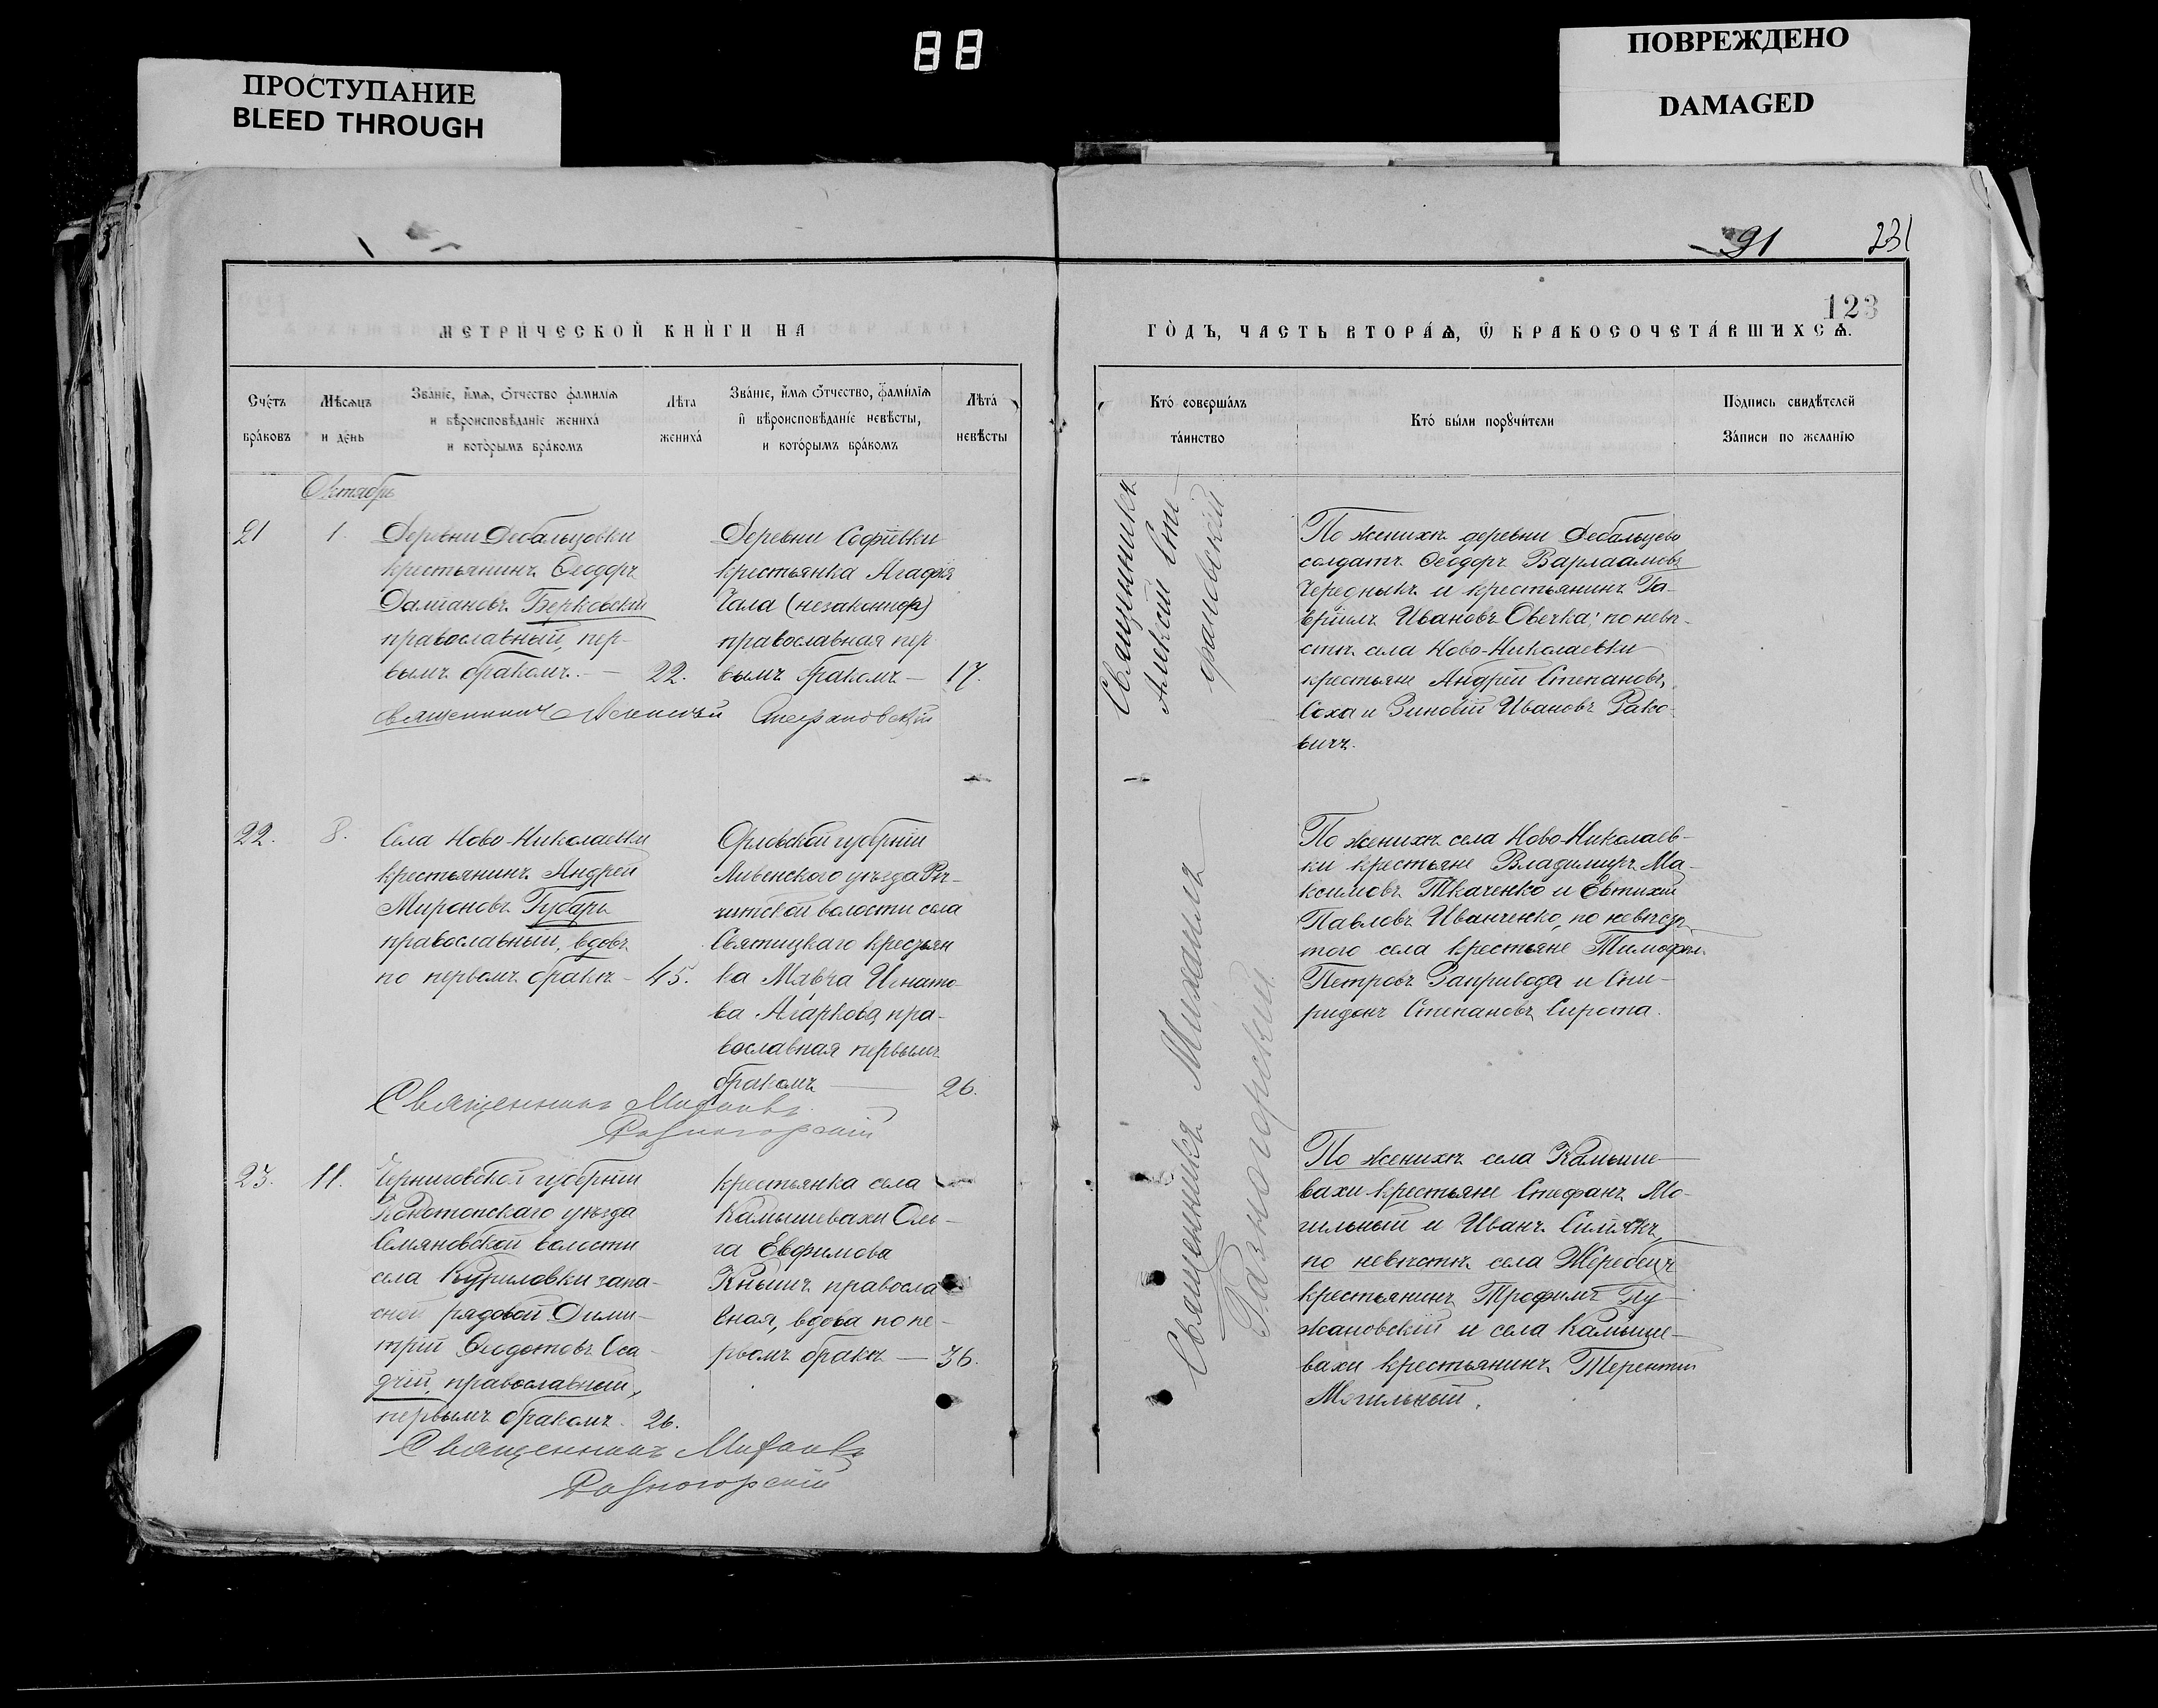 88
ПРОСТУПАНИЕ
BLEED THROUGH
ПОВРЕЖДЕНО
DAMAGED
91
231
123
МЕТРИ́ЧЕСКОЙ КНИ́ГИ НА
ГО́ДЪ, ЧАСТЬ ВТОРА́Ѧ, Ѽ БРАКОСОЧЕТА́ВШИХСѦ.
Сче́тъ
бра́ковъ
Мѣ́сѧцъ
и де́нь
Зва́ніе, и́мѧ, о́тчество фами́лїѧ
и вѣроисповѣ́даніе жениха́
и кото́рымъ бра́комъ
Лѣ́та
жениха́
Зва́ніе, и́мѧ о́тчество, фами́лїѧ
и вѣроисповѣ́даніе невѣ́сты,
и кото́рымъ бра́комъ
Лѣ́та
невѣ́сты
Кто́ соверша́лъ
та́инство
Кто́ бы́ли порꙋчи́тели
По́дпись свидѣ́телей
За́писи по жела́нїю
Октябрь
21
1.
Деревни Дебальцовки
крестьянинъ Ѳеодоръ
Даміановъ Берковскій
православный, пер-
вымъ бракомъ. —
22.
Деревни Софіевки
крестьянка Агафія
Чала (незаконнор)
православная пер
вымъ бракомъ —
17.
священникъ Алексій Стефановскій
Священникъ
Алексій Сте-
фановскій
По женихѣ деревни Дебальцево
солдатъ Ѳеодоръ Варлаамовъ
Чередныкъ и крестьянинъ Га-
вріилъ Ивановъ Овечка; по невѣ-
стѣ села Ново-Николаевки
крестьяне Андрей Степановъ
Соха и Зиновій Ивановъ Рако-
вичъ.
22.
8.
Села Ново-Николаевки
крестьянинъ Андрей
Мироновъ Губарь
православный, вдовъ
по первомъ бракѣ —
45.
Орловской губерніи
Ливенского уѣзда Рѣ-
читской волости села
Святицкаго крестьян
ка Мавра Игнато-
ва Агаркова пра-
вославная первымъ
бракомъ —
26.
Священникъ Михаилъ
Разногорскій
По женихѣ села Ново-Николаев-
ки крестьяне Владимиръ Ма-
ксимовъ Ткаченко и Евтихій
Павловъ Иванченко, по невѣстѣ
того села крестьяне Тимофей
Петровъ Запривода и Спи-
ридонъ Степановъ Сирота.
23.
11.
Черниговской губерніи
Конотопскаго уѣзда
Семяновской волости
села Куриловки запа-
сной рядовой Дими-
трій Ѳеодотовъ Оса-
дчій, православный,
первымъ бракомъ.
26.
крестьянка села
Камышевахи Оль-
га Евфимова
Кнышъ правосла
вная, вдова по пе-
рвомъ бракѣ —
36.
Священникъ Михаилъ
Разногорскій
Священникъ Михаилъ
Разногорскій
По женихѣ села Камыше-
вахи крестьяне Стефанъ Мо-
гильный и Иванъ
по невѣстѣ села Жеребецъ
крестьянинъ Трофимъ Пу-
жановскій и села Камыше-
вахи крестьянинъ Терентій
Могильный.